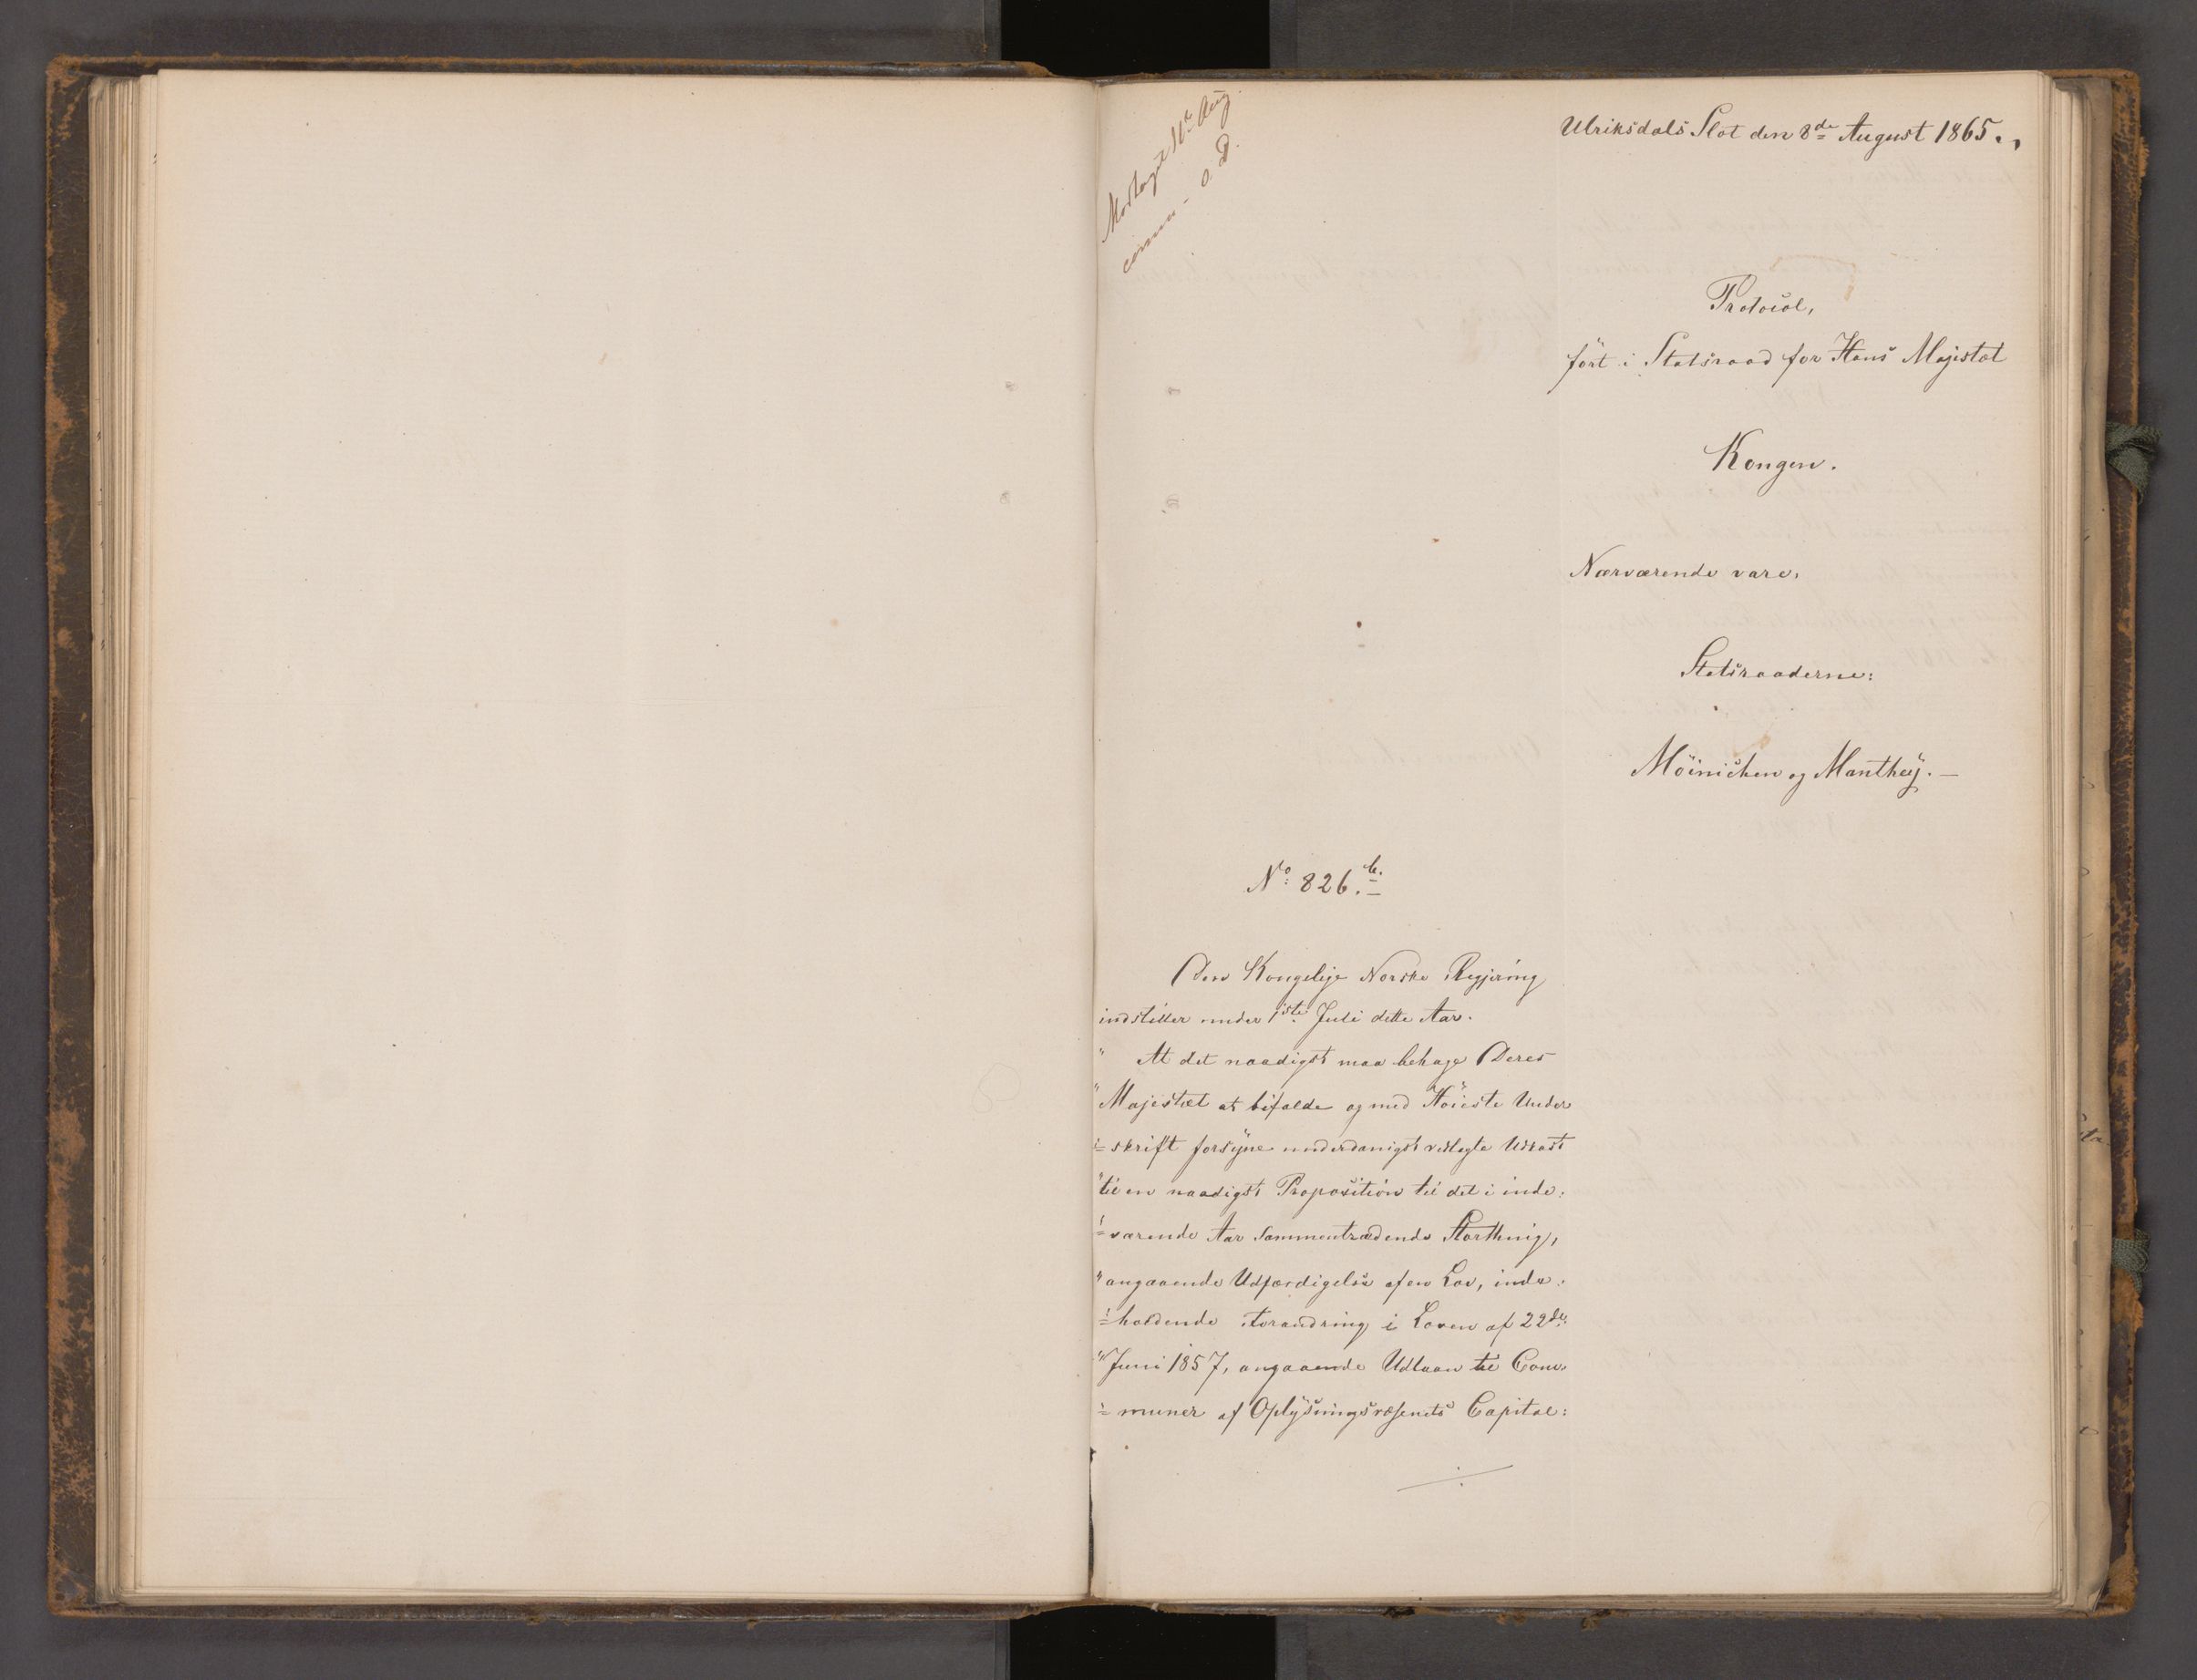 Modtaget 11te Aug.
O. D.
Ulriksdals Slot den 8de August 1865.
Protocol,
fört i Statsraad for Hans Majestæt
Kongen.
Nærværende vare,
Statsraaderne:
Möinichen og Manthey. —
No 826. b.
Den Kongelige Norske Regjering
indstiller under 1ste Juli dette Aar.
" At det naadigst maa behage Deres
" Majestæt at bifalde og med Höieste Under
"= skrift forsyne underdanigst vedlagte Udkast
" til en naadigst Proposition til det i inde=
"= værende Aar sammentrædende Storthing,
" angaaende Udfærdigelse af en Lov, inde=
"= holdende Forandring i Loven af 22de
" Juni 1857, angaaende Udlaan til Com=
"= muner af Oplysningsvæsenets Capital: